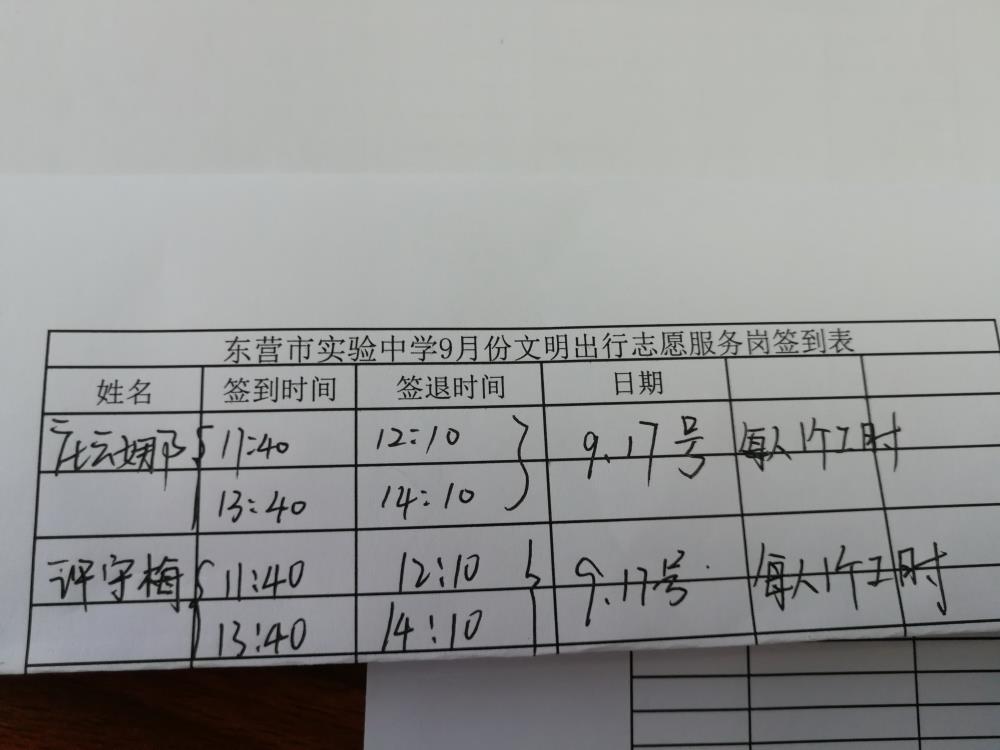 东营市实验中学9月份文明出行志愿服务岗签到表
姓名 签到时间 签退时间 日期
11:40 12:10 9.17号 每人1个工时
13:40 14:10
许守梅 11:40 12:10 9.17号 每人1个工时
13:40 14:10